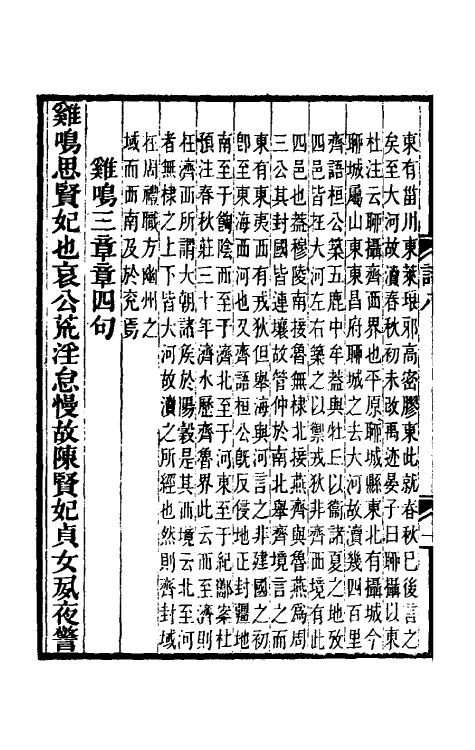 東有甾川東萊琅邪高密膠東此就春秋已後言之
矣至大河故瀆春秋初未改禹迹晏子曰聊攝以東
杜注云聊攝齊西界也平原聊城縣東北有攝城今
聊城屬山東東昌府聊城之去大河故瀆幾四百里
齊語桓公築五鹿中牟蓋與牡丘以衞諸夏之地攷
四邑皆在大河左右築之以禦戎狄非齊西境有此
四邑也蓋穆陵南接魯無棣北接燕齊與魯燕爲周
三公其封國皆連壤故管仲於南北舉齊境言之而
東有東夷西有戎狄但舉海與河言之非建國之初
卽至東海西河也又齊語桓公旣反侵地正封疆地
南至于䧟陰西至于濟北至于河東至于紀酅案杜
預注春秋莊三十年濟水歷齊魯界此云西至濟則
在濟西所謂大朝諸矦於陽穀是其西境云北至河
者無棣之上下皆大河故瀆之所經也然則齊封域
在周禮職方幽州之
域而西南及於兖焉
雞鳴三章章四句
雞鳴思賢妃也哀公荒淫怠慢故陳賢妃貞女夙夜警
詩八